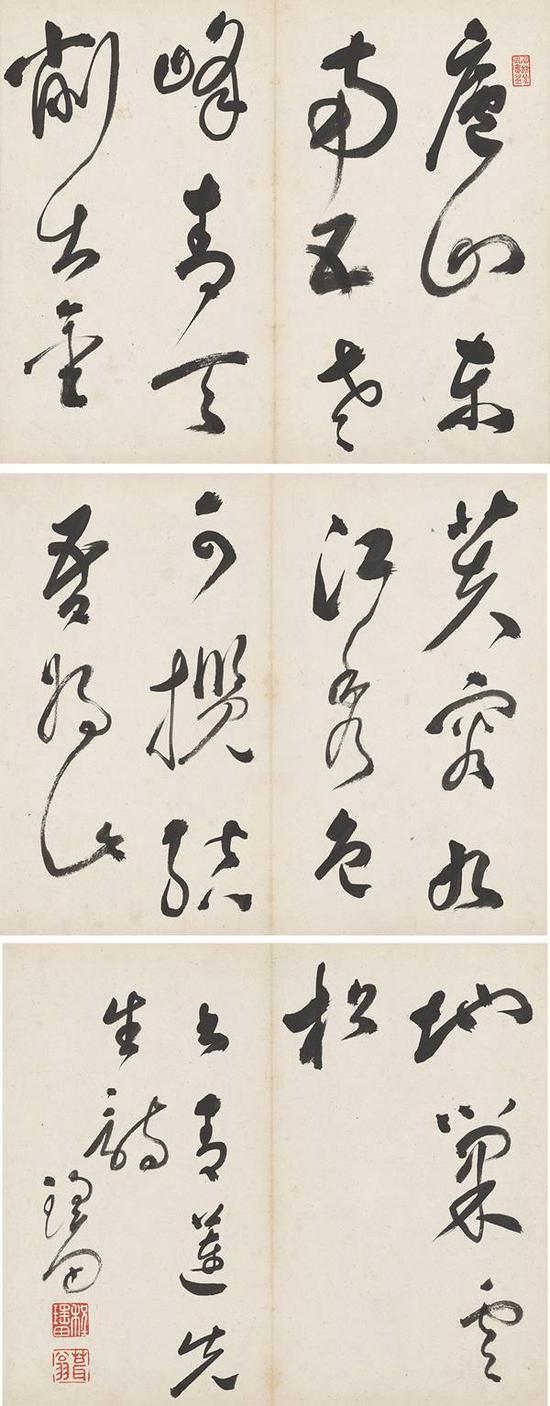 廬山東
南五老
峰青天
削出金
芙蓉九
江秀色
可攬結
吾將此
地巢雲
松
書青蓮先
生詩
瑤田
程瑤田
葺翁